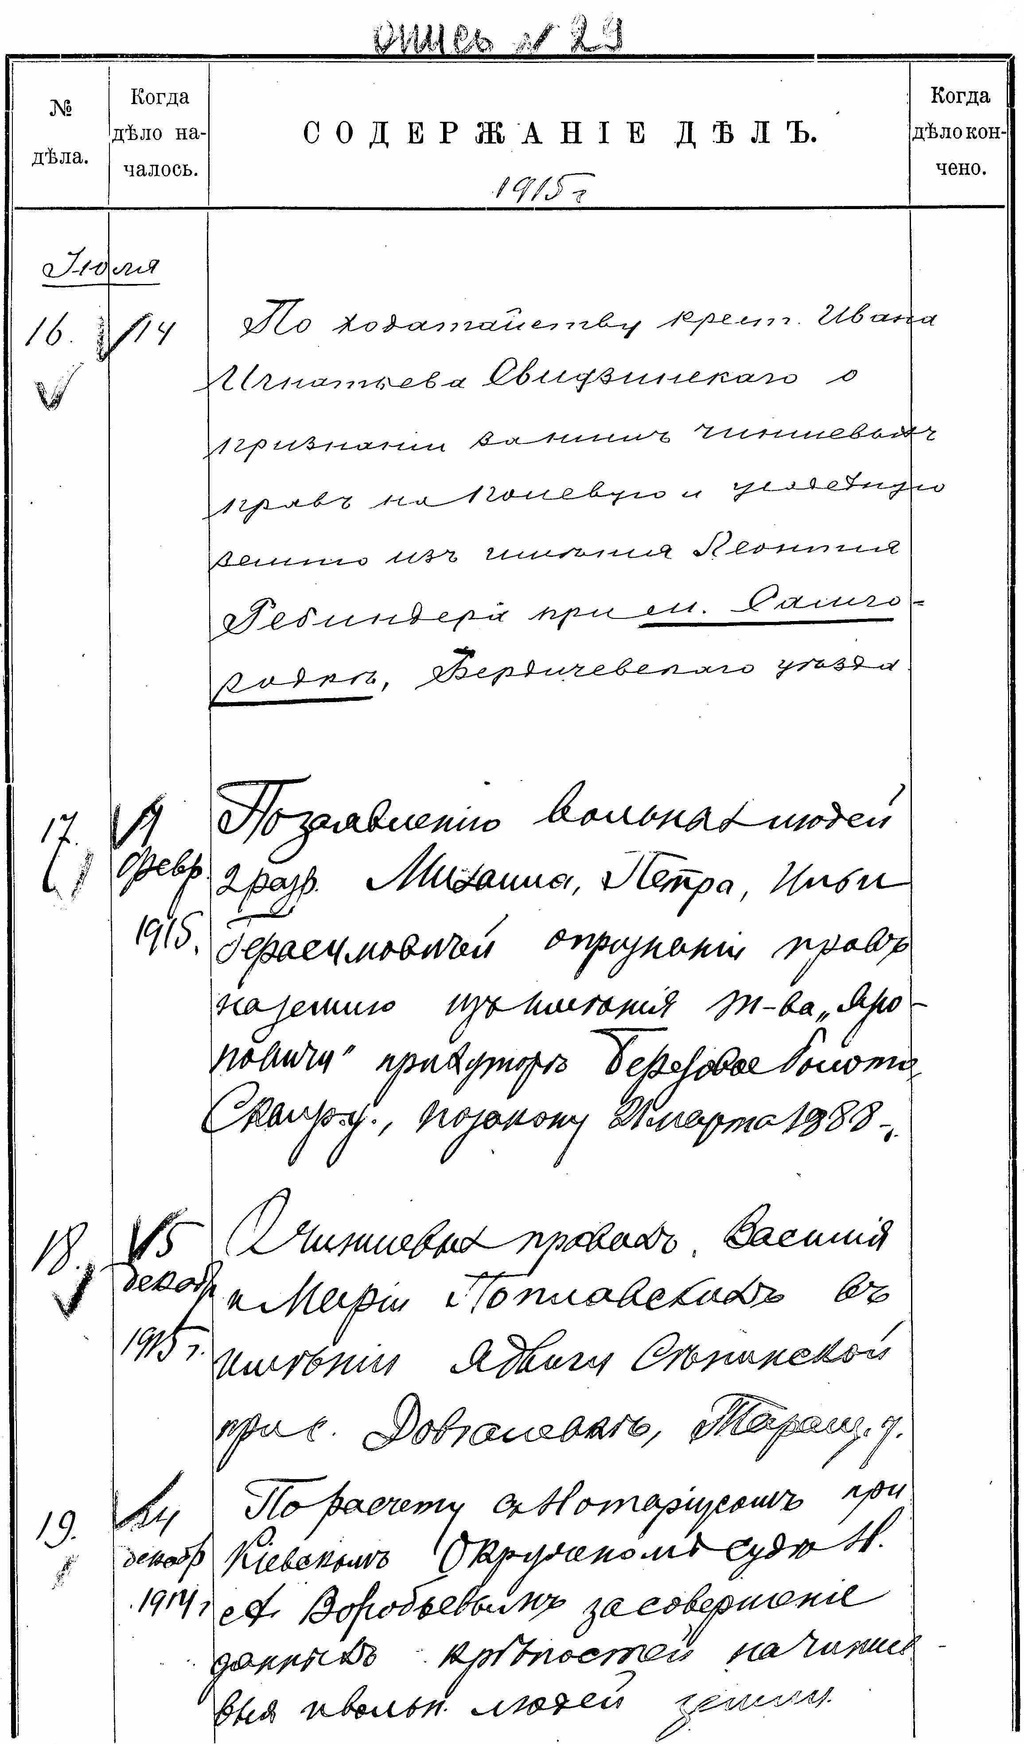 Опись № 29
№ дѣла.
Когда дѣло началось.
СОДЕРЖАНІЕ ДѢЛЪ.
Когда дѣло кончено.
1915 г
Іюля
16. 14 По ходатайству крест. Ивана
Игнатьева Свидзинскаго о
признаніи за нимъ чиншевыхъ
правъ на полевую и усадебную
землю изъ имѣнія Леонтія
Ребиндера при м. Самго-
родкѣ, Бердичевскаго уѣзда
17. По заявленію вольныхъ людей
февр. 2 разр. Михаила, Петра, Ильи
1915. Герасимовичей о признаніи правъ
на землю изъ имѣнія т-ва „Яро-
повичи" при хуторѣ Березовое Болото,
Сквир. у., по закону 21 марта 1888 г.
18. 15 О чиншевыхъ правахъ Василія
декабр и Маріи Поплавскихъ въ
1915 г. имѣніи Ядвиги Съпинской
при с. Довгалевкѣ, Таращ. у.
19. 24 По расчету съ Нотаріусомъ при
декабр Кіевскомъ Окружномъ судѣ Н.
1914 г А. Воробьевымъ за совершеніе
данныхъ крѣпостей на чинше-
выя и вольн. людей земли.